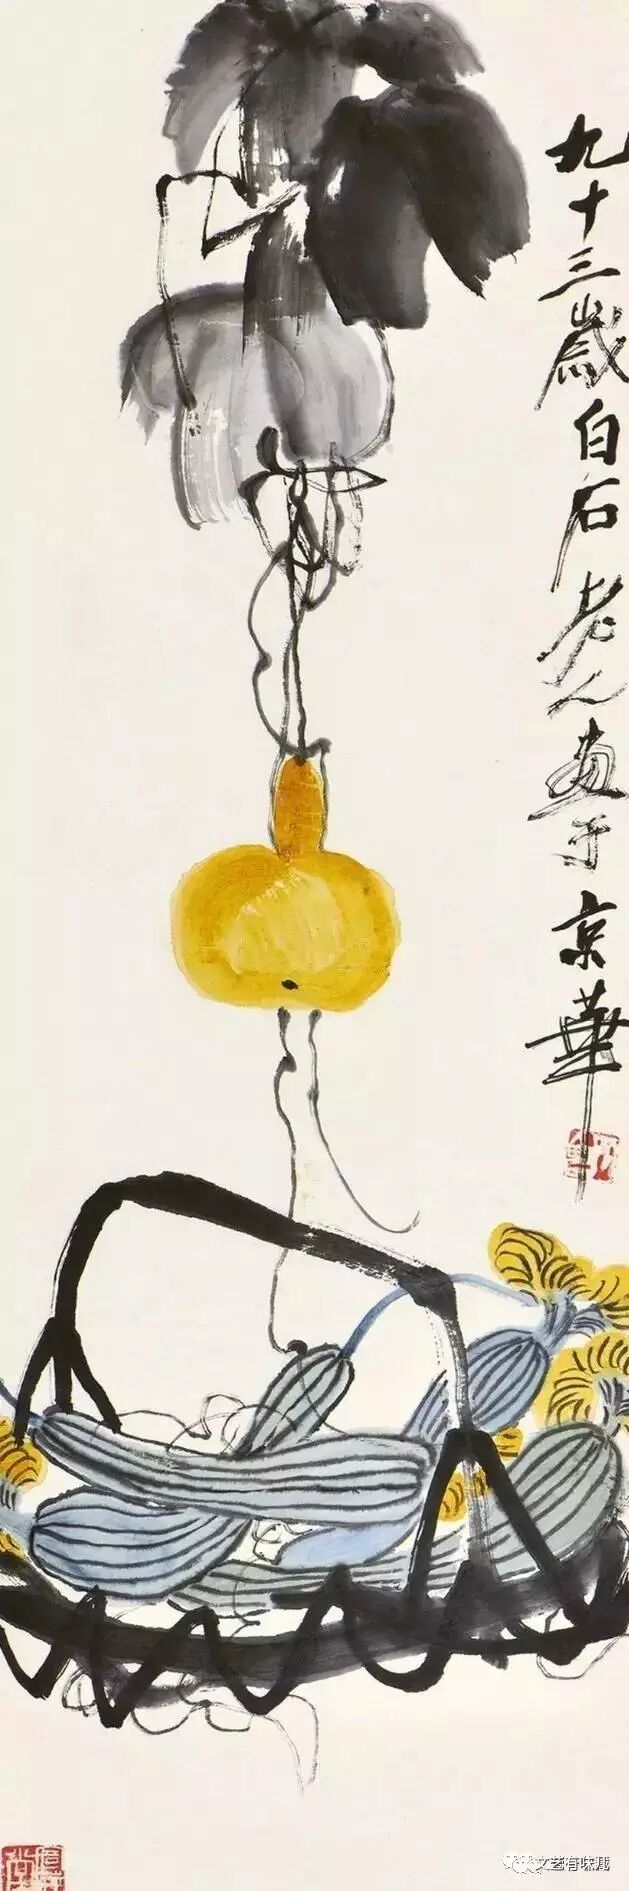 九十三歲白石老人畫于京華
文艺有味儿